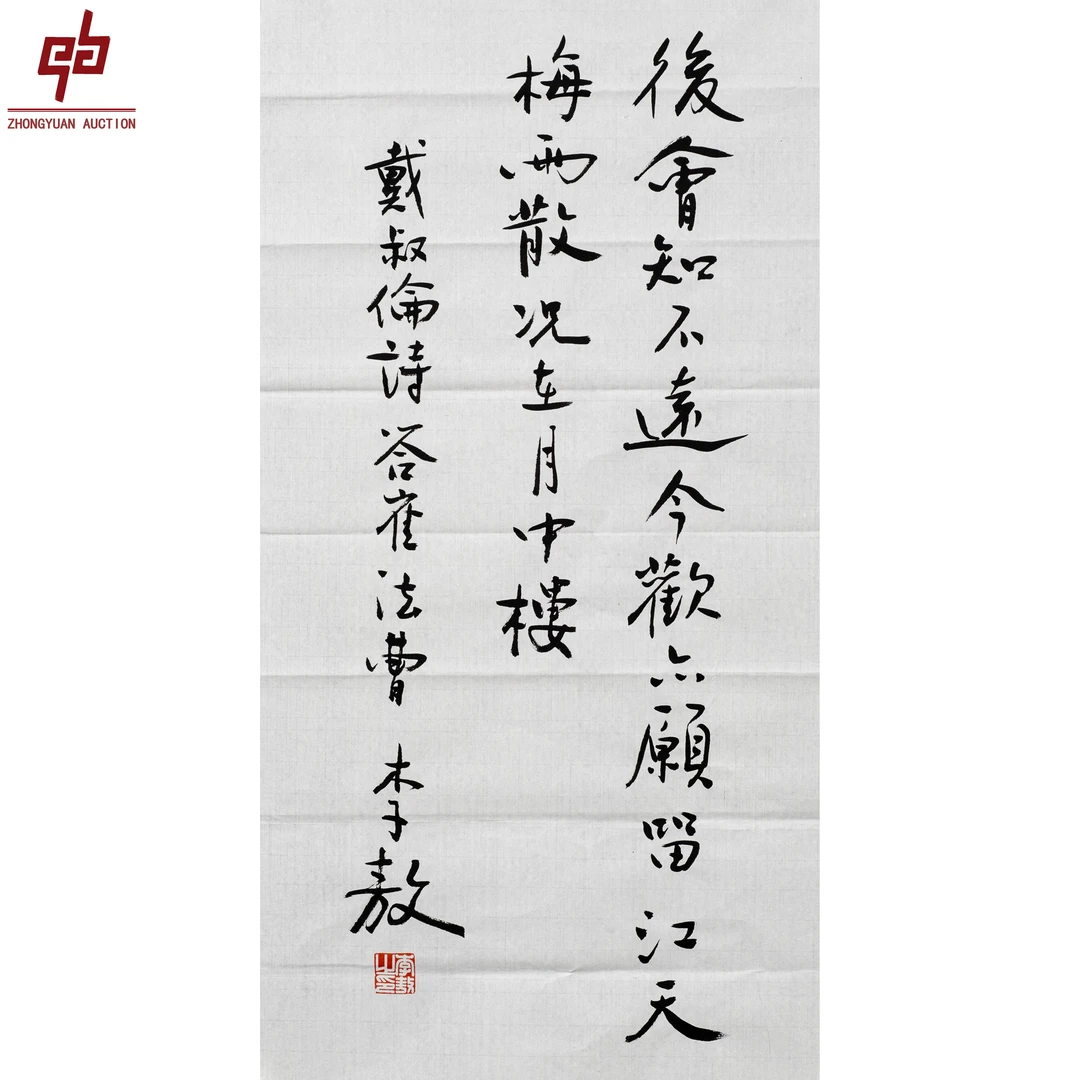 ZHONGYUAN AUCTION
後會知不遠今歡亦願留江天
梅雨散况在月中樓
戴叔倫詩答崔法曹 李敖
李敖之印